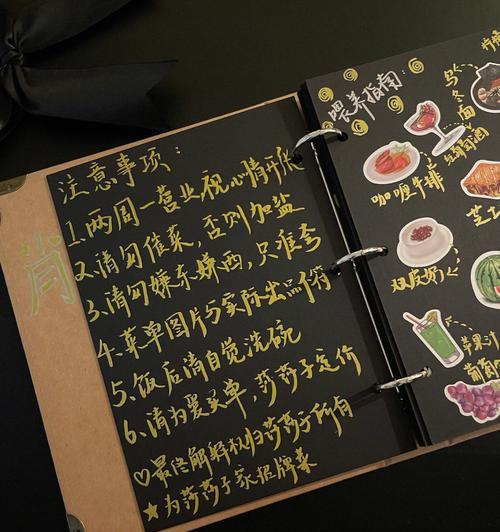 注意事项:
1.两周一营业视心情开张
2.请勿催菜,否则加盐
3.请勿嫌东嫌西,只准夸
4.菜单图片与实际出品不符
5.饭后请自觉洗碗
6.请为爱买单,莎莎子定价
♡最终解释权归莎莎子所有
★为莎莎子家招牌菜
喂养指南:
乌冬面
红葡萄酒
咖喱牛排
双皮奶
苹果汁
葡萄